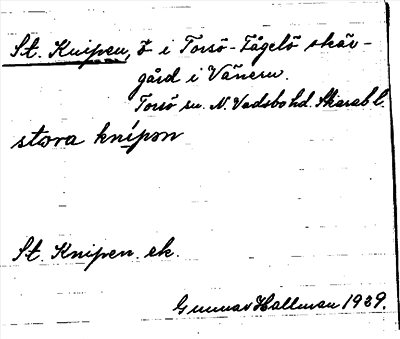 St. Knipen, ö i Torsö-Fågelö skär-
gård i Vänern.
Torsö sn. N. Vadsbo hd. Skarab l.
stora knípon
St. Knipen. ek.
Gunnar Hallman 1929.